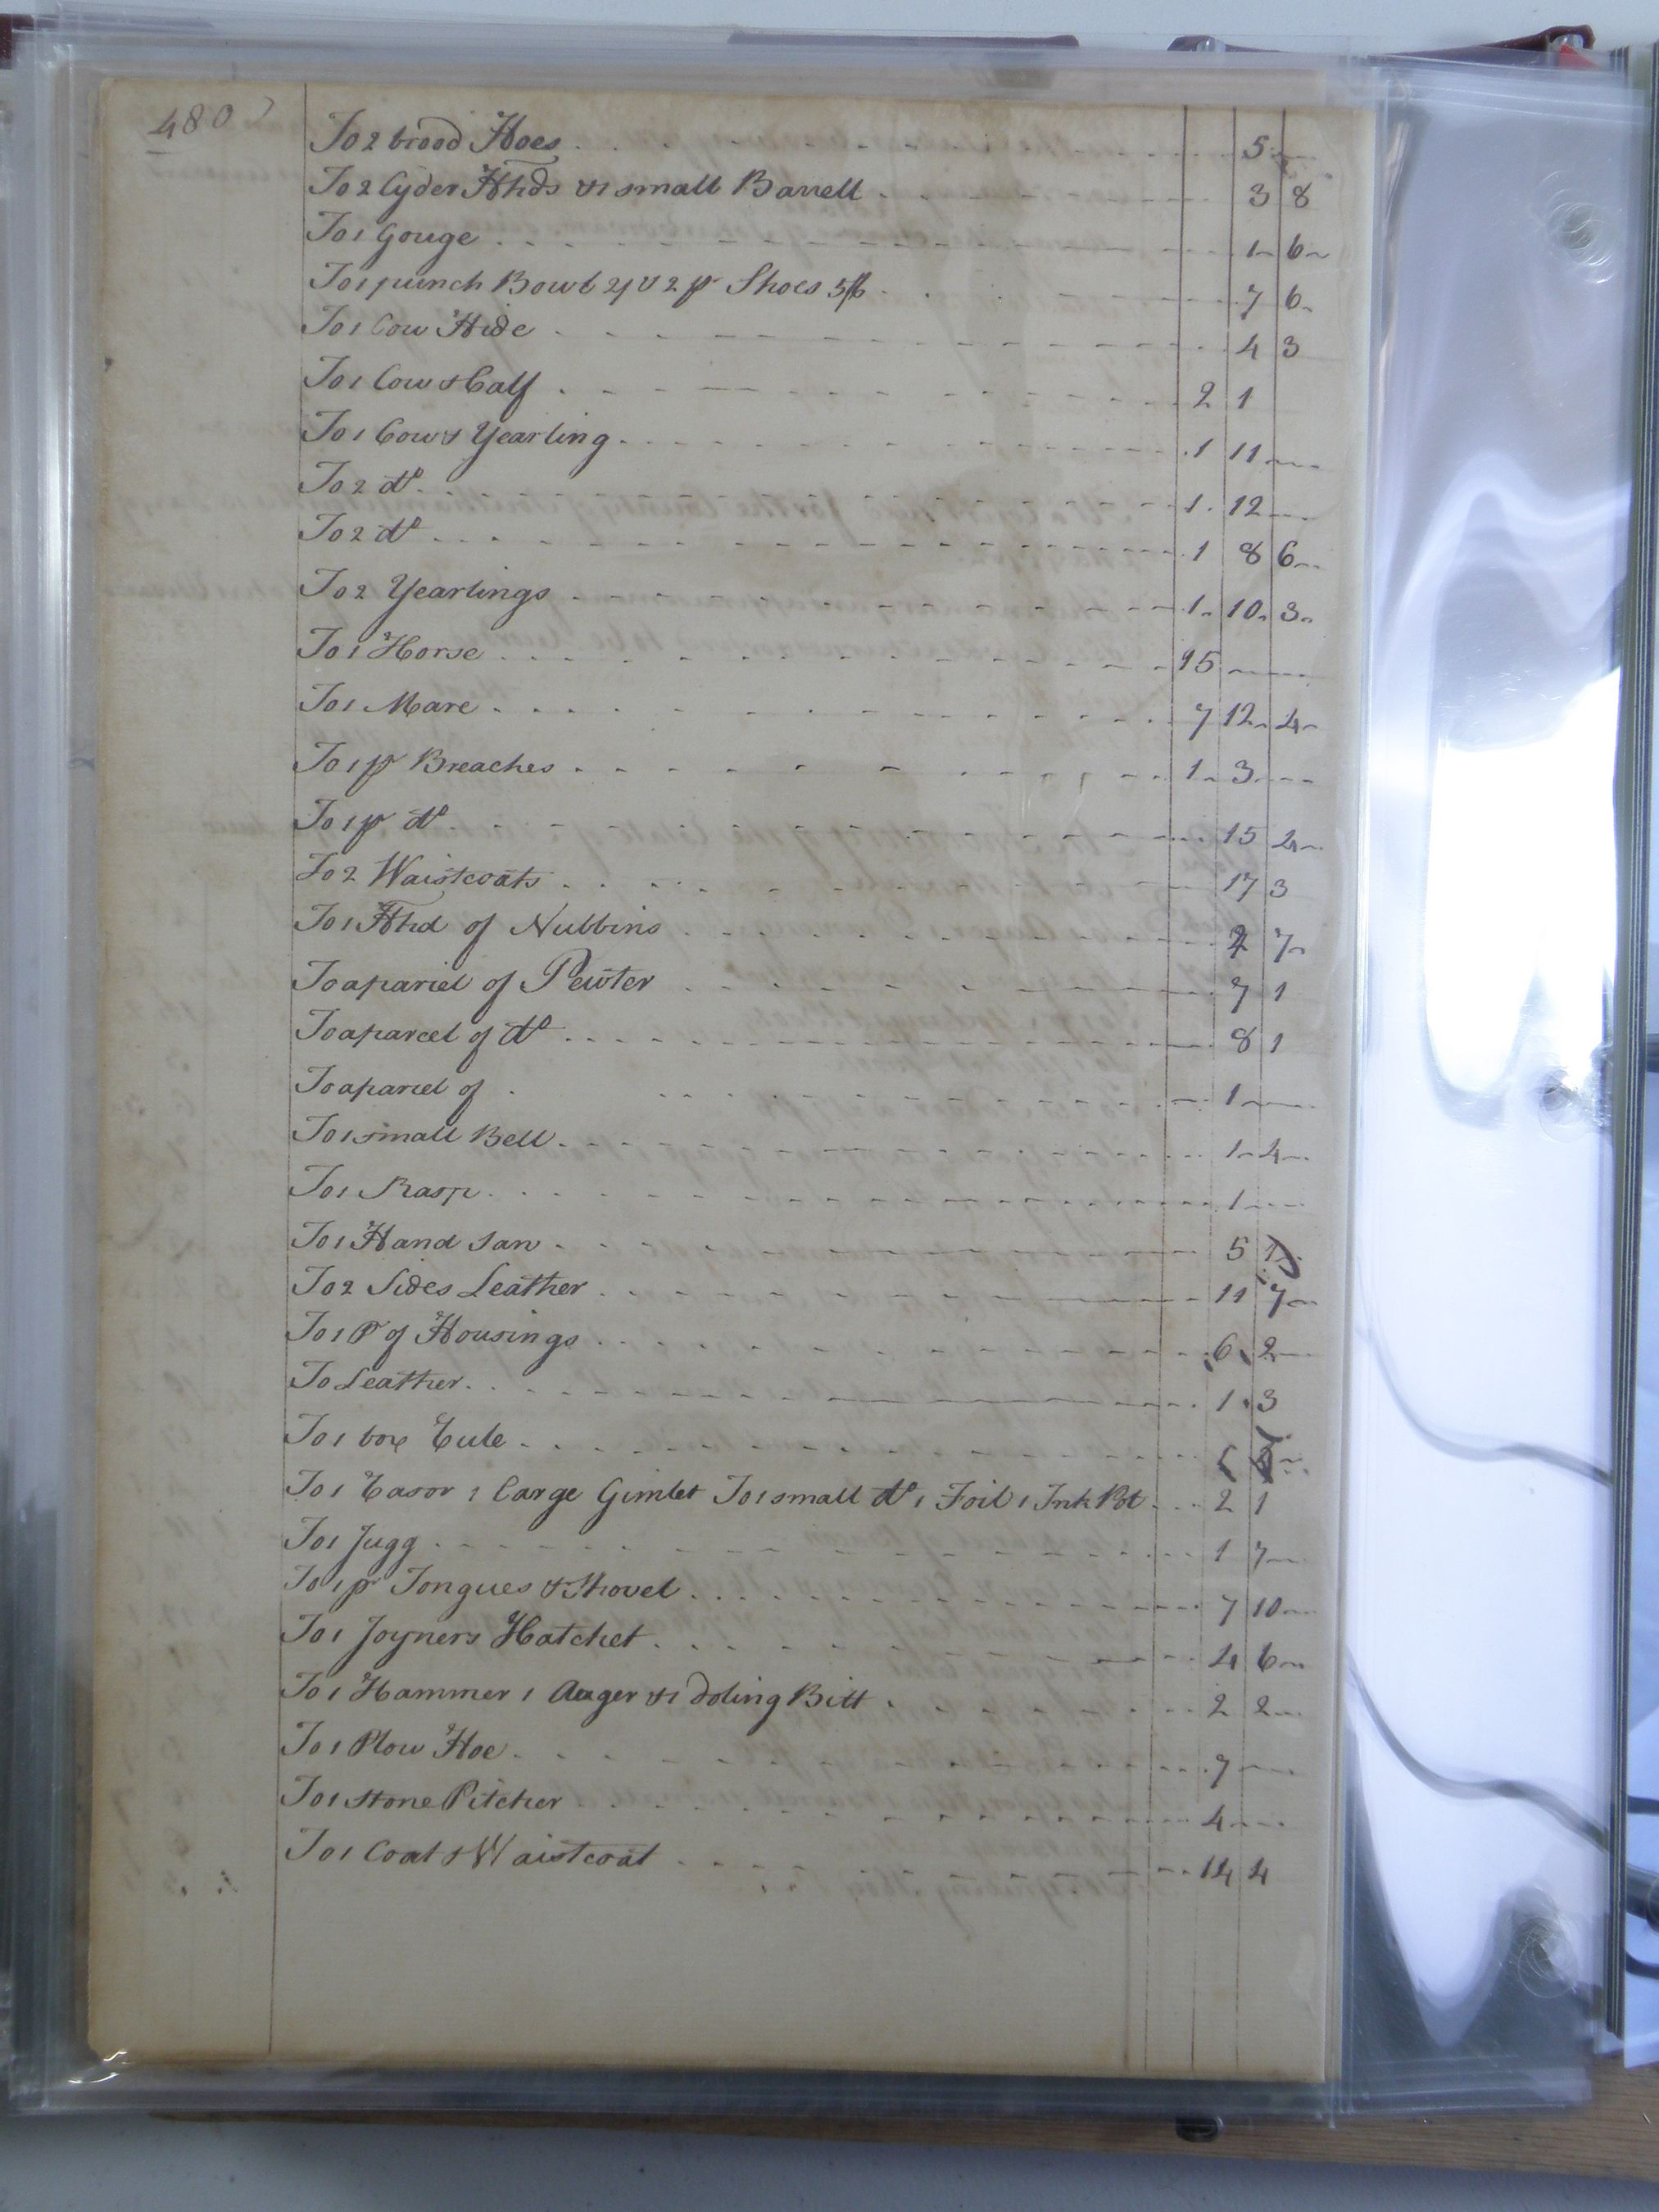 480
To 2 broad Hoes 5
To 2 Cyder Hhds & 1 small Barrell 3 8
To 1 Gouge 1 6
To 1 punch Bowl 2/ & 2 pr Shoes 5/6 7 6
To 1 Cow Hide 4 3
To 1 Cow & Calf 2 1
To 1 Cow & Yearling 1 11
To 2 do 1 12
To 2 do 1 8 6
To 2 Yearlings 1 10 3
To 1 Horse 15
To 1 Mare 7 12 4
To 1 pr Breaches 1 3
To 1 pr do 15 4
To 2 Waistcoats 17 3
To 1 Hhd of Nubbins 7
To a parcel of Pewter 7 1
To a parcel of do 8 1
To a parcel of 1
To 1 small Bell 1 4
To 1 Rasp 1
To 1 Hand Saw 5
To 2 Sides Leather 11 7
To 1 P of Housings 6 2
To Leather 1 3
To 1 box
To 1 1 Large Gimlet To 1 small do 1 Foil 1 Ink Pot 2 1
To 1 Jugg 1 7
To 1 pr Tongues & Shovel 7 10
To 1 Joyners Hatchet 4 6
To 1 Hammer 1 Auger & 1 doling Bitt 2 2
To 1 Plow Hoe 7
To 1 Stone Pitcher 4
To 1 Coat & Waistcoat 14 4